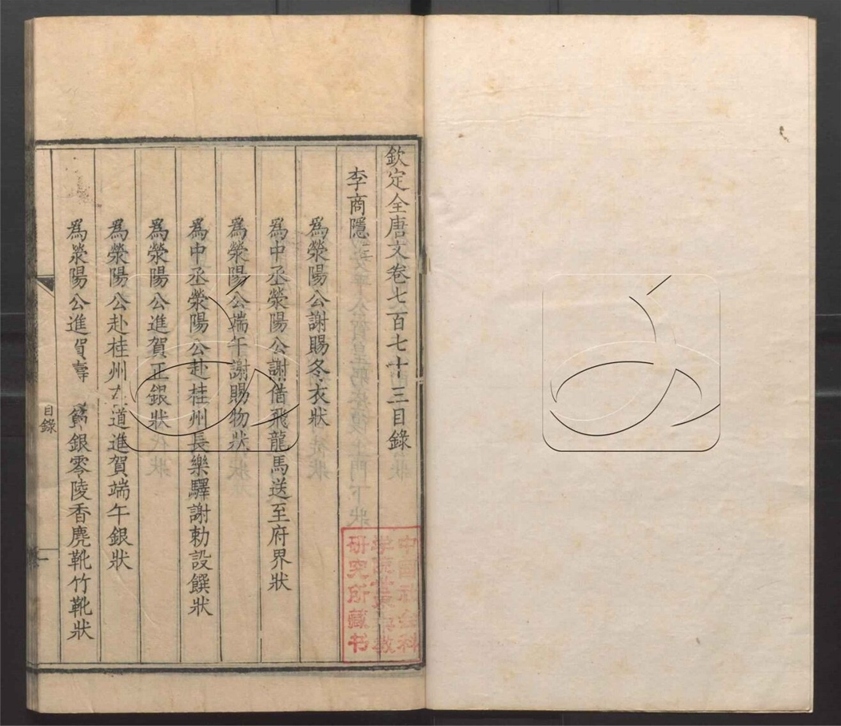 欽定全唐文卷七百七十三目錄
李商隱
爲滎陽公謝賜冬衣狀
爲中丞滎陽公謝借飛龍馬送至府界狀
爲滎陽公端午謝賜物狀
爲中丞滎陽公赴桂州長樂驛謝勅設饌狀
爲滎陽公進賀正銀狀
爲滎陽公赴桂州在道進賀端午銀狀
爲滎陽公進賀壽銀零陵香麂靴竹靴狀
目錄
一
中國社会科
学院世界宗教
研究所藏书